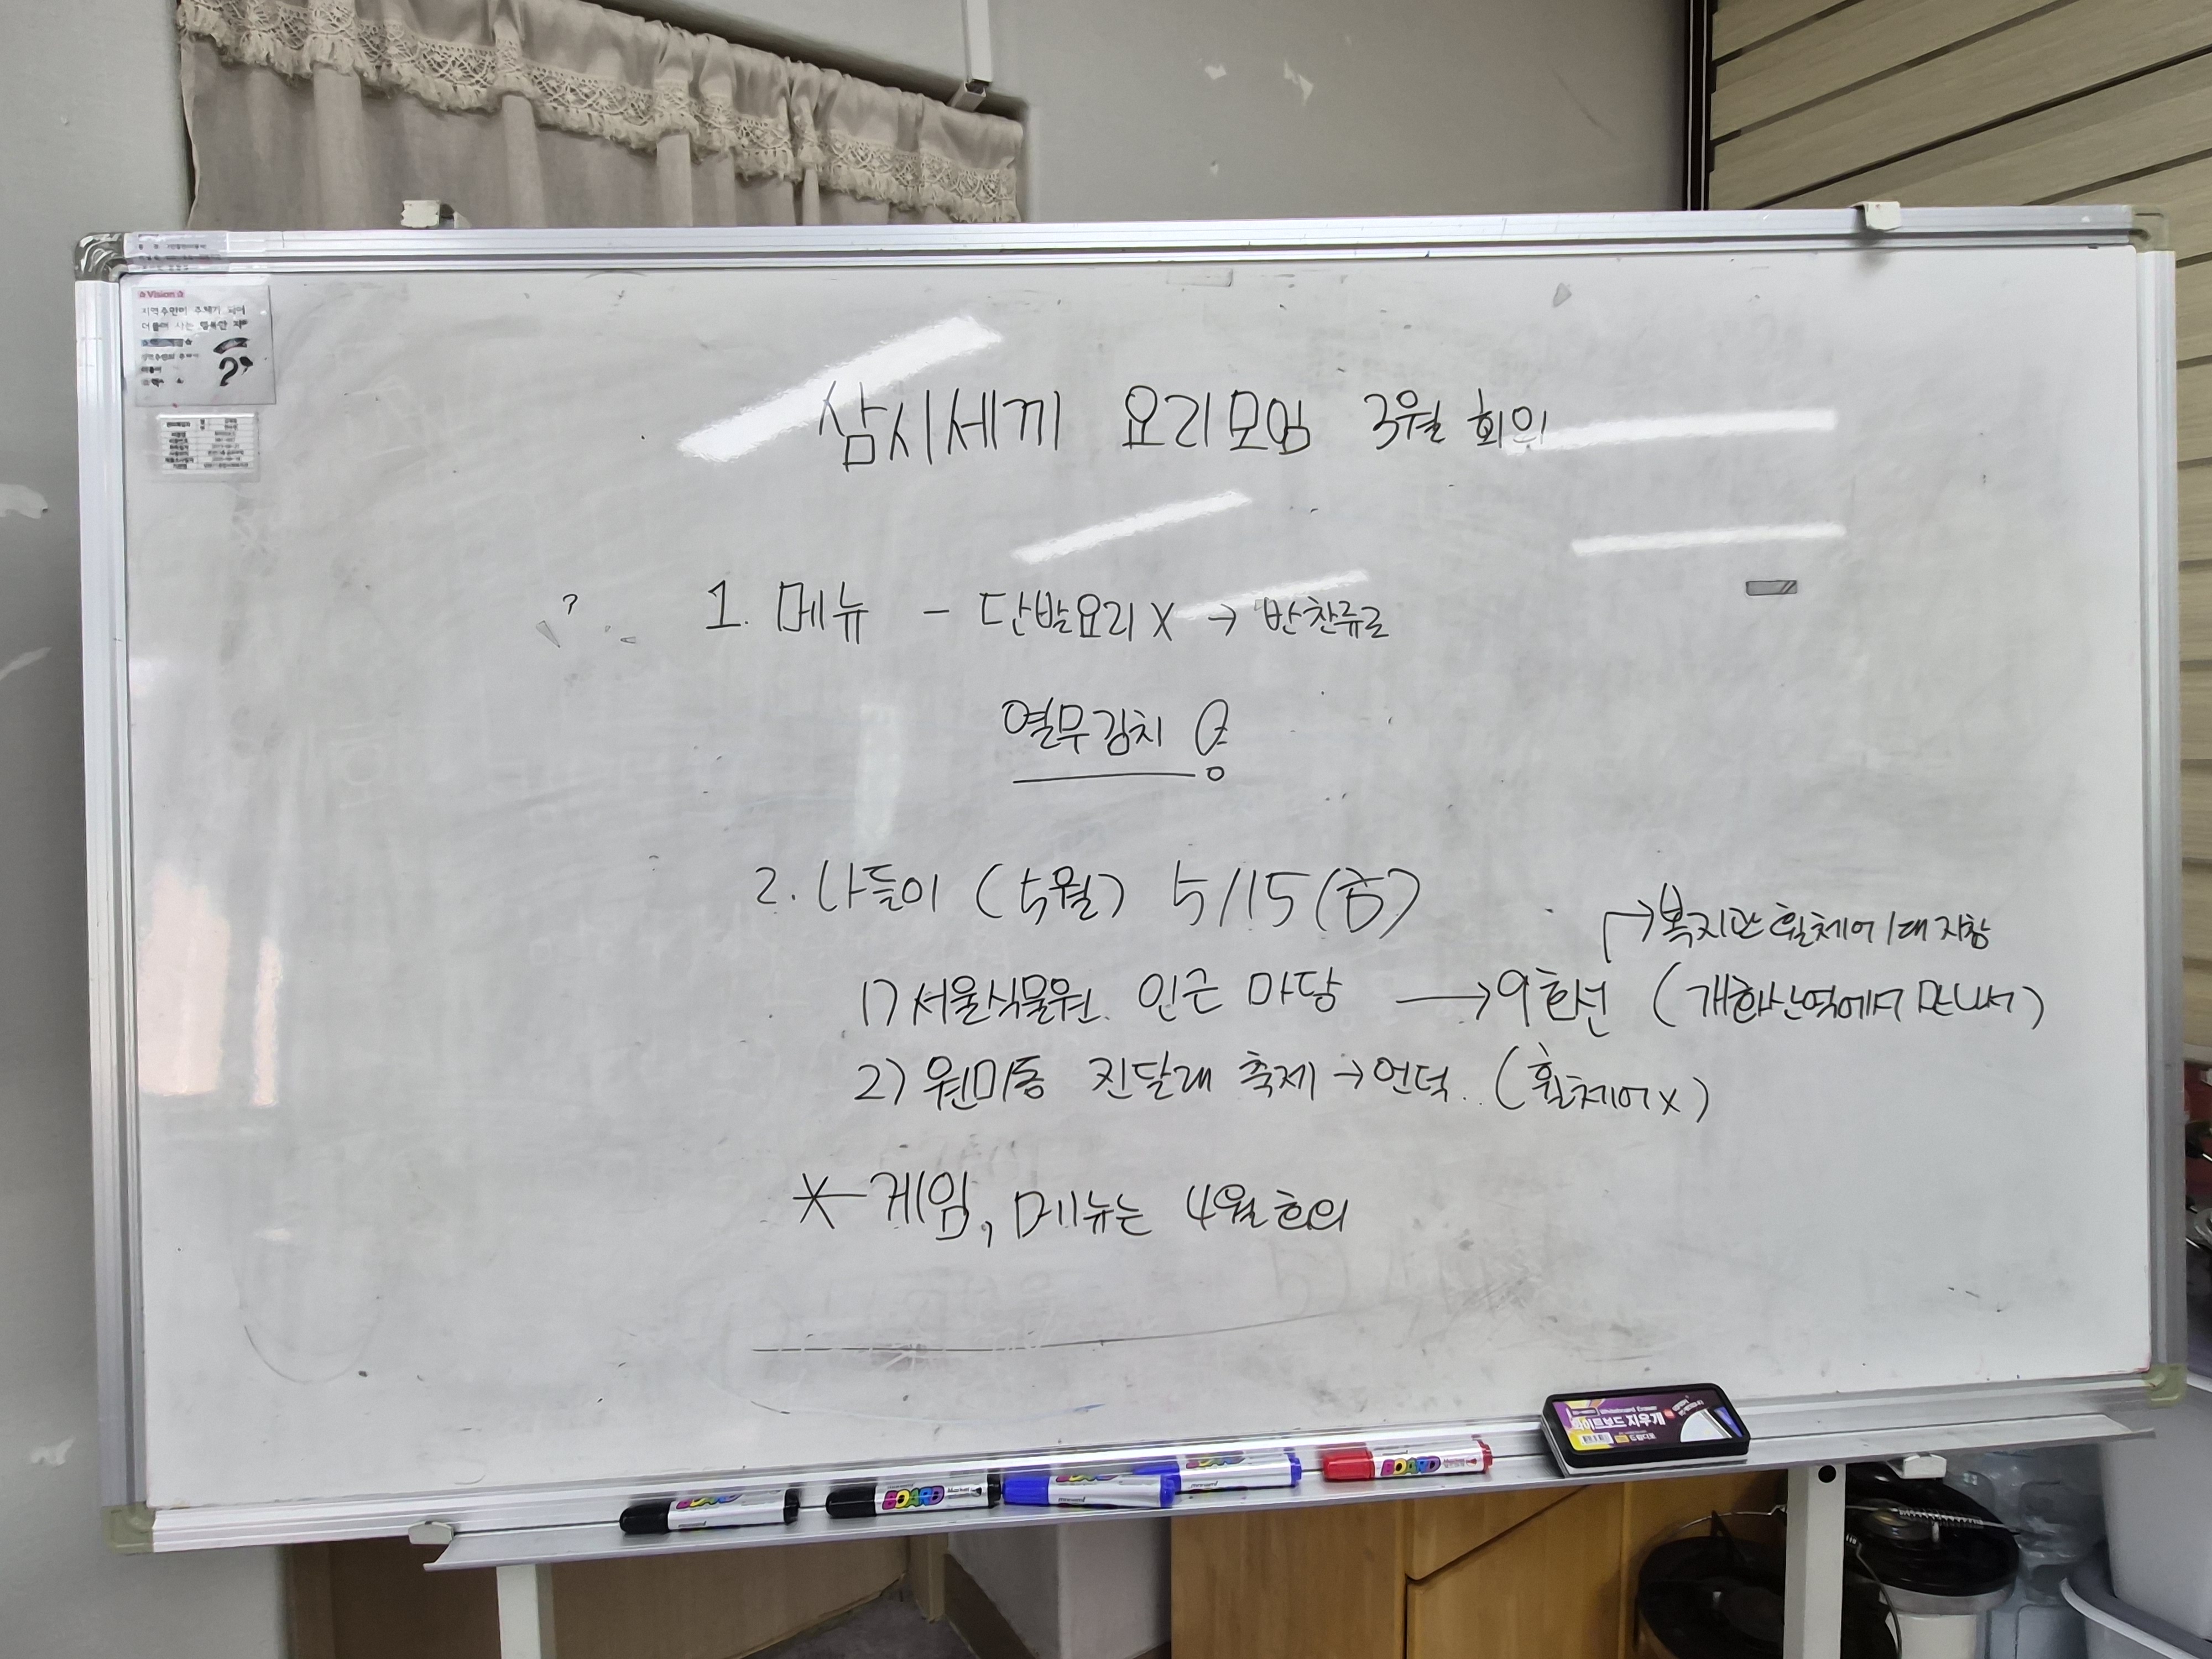 삼시세끼 요리모임 3월 회의
1. 메뉴 - 단발요리 X → 반찬류로
열무김치
2. 나들이 (5월) 5/15(금)
→ 복지관 휠체어 1대 지참
1) 서울식물원 인근 마당 → 9호선 (개화산역에서 만나서)
2) 원미동 진달래 축제 → 언덕. (휠체어 x)
* 게임, 메뉴는 4월 회의
Vision
지역주민이 주체가 되어
더불어 사는 행복한 지
BOARD
BOARD
BOARD
화이트보드 지우개